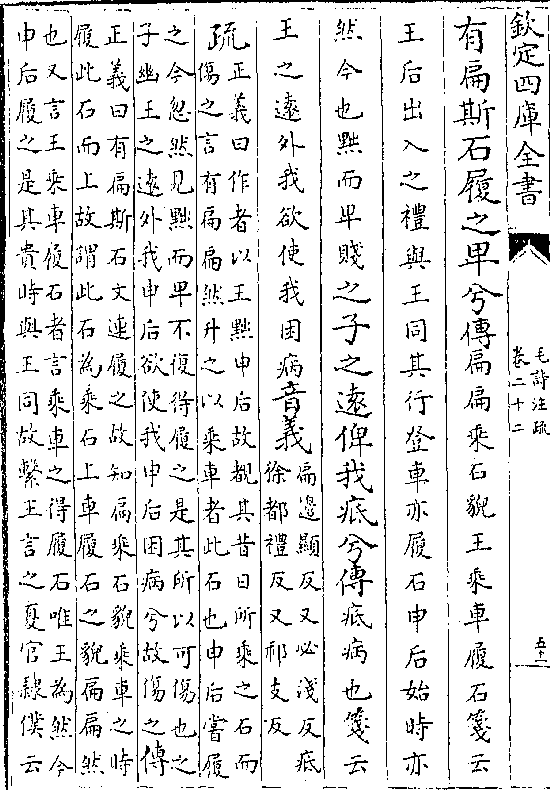 欽定四庫全書
毛詩注疏
卷二十二
有扁斯石履之卑兮傳扁扁乘石貌王乘車履石箋云
王后出入之禮與王同其行登車亦履石申后始時亦
然今也黜而卑賤之子之遠俾我疧兮傳疧病也箋云
王之遠外我欲使我困病音義
扁邊顯反又必淺反疧
徐都禮反又祁支反
疏
正義曰作者以王黜申后故覩其昔日所乘之石而
傷之言有扁扁然升之以乘車者此石也申后嘗履
之今忽然見黜而卑不復得履之是其所以可傷也之
子幽王之遠外我申后欲使我申后困病兮故傷之傳
正義曰有扁斯石文連履之故知扁乘石貌乘車之時
履此石而上故謂此石為乘石上車履石之貌扁扁然
也又言王乘車履石者言乘車之得履石唯王為然今
申后履之是其貴時與王同故繫王言之夏官隸僕云